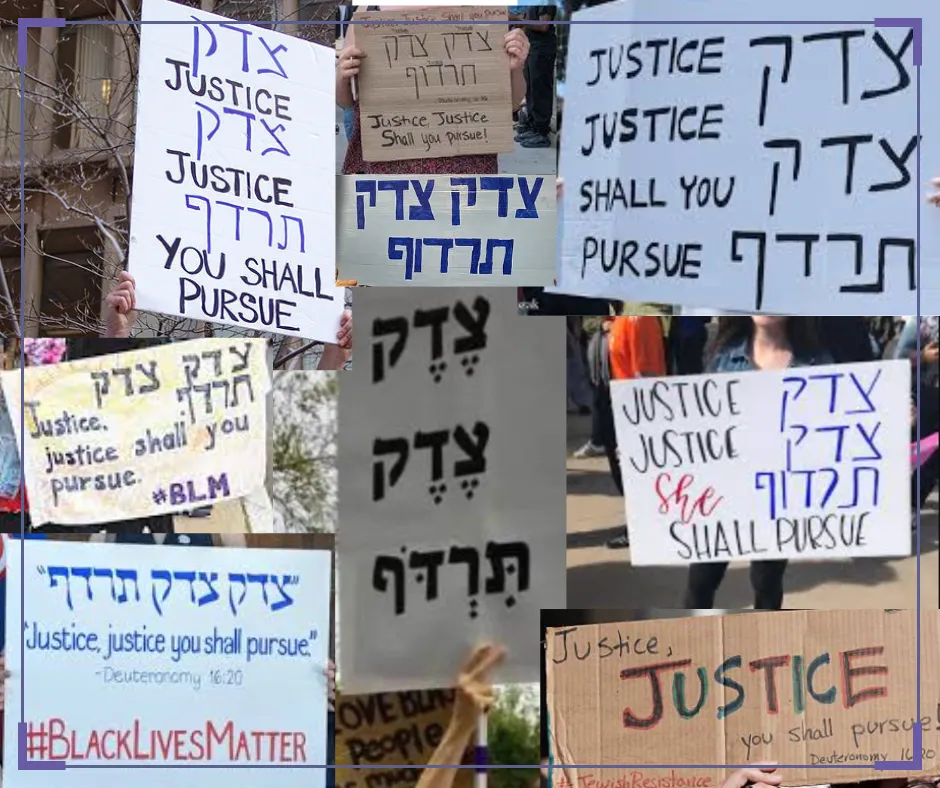 צדק
JUSTICE
צדק
JUSTICE
תרדף
YOU SHALL
PURSUE
Justice, Justice Shall you pursue
צדק צדק
תרדוף
Justice, Justice
Shall you pursue!
צדק צדק
תרדוף
JUSTICE צדק
JUSTICE צדק
SHALL YOU
PURSUE תרדף
צדק צדק
תרדף
Justice,
justice shall you
pursue.
#BLM
צֶדֶק
צֶדֶק
תִּרְדֹּף
JUSTICE צדק
JUSTICE צדק
She תרדוף
SHALL PURSUE
"צדק צדק תרדף"
"Justice, justice you shall pursue."
-Deuteronomy 16:20
#BLACKLIVESMATTER
People
Justice,
JUSTICE
you shall pursue!
Deuteronomy 16:20
#JewishResistance